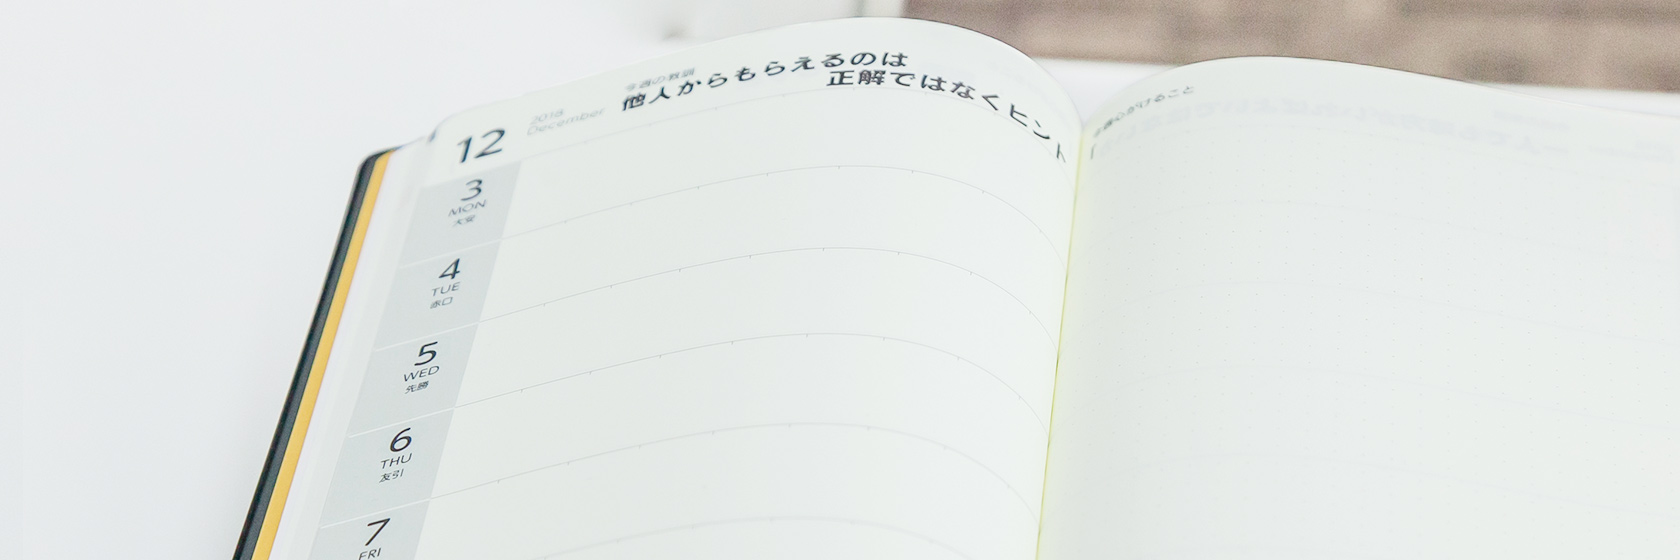 今週の教訓
他人からもらえるのは
正解ではなくヒント
2018
December
12
3
MON
大安
4
TUE
赤口
5
WED
先勝
6
THU
友引
7
FRI
今週心がけること